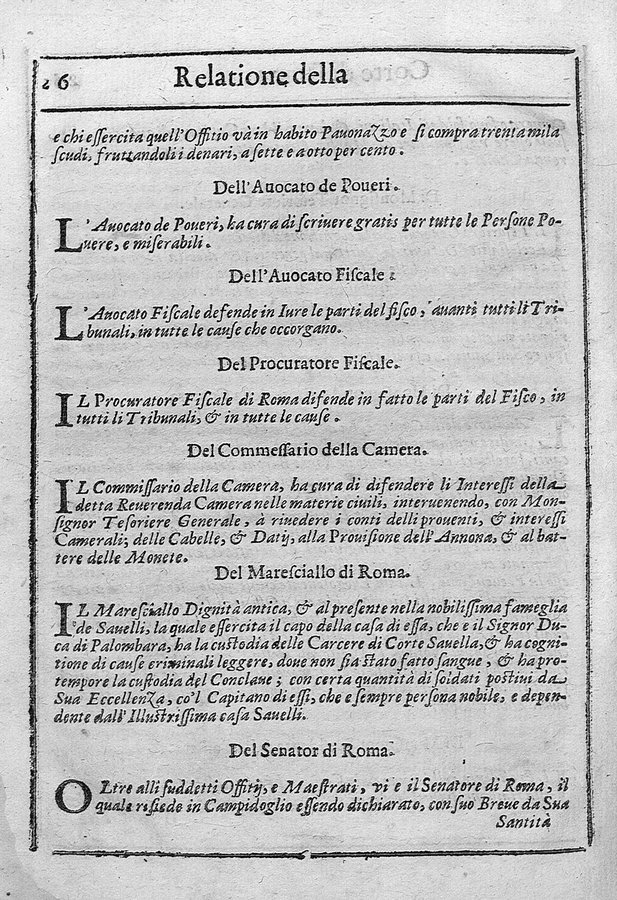 26 Relatione della
e chi eſſercita quell'Offitio và in habito Pauonazzo e ſi compra trenta mila
ſcudi, fruttandoli i denari, a ſette e a otto per cento.
Dell'Auocato de Poueri.
L'Auocato de Poueri, ha cura di ſcriuere gratis per tutte le Perſone Po-
uere, e miſerabili.
Dell'Auocato Fiſcale.
L'Auocato Fiſcale defende in Iure le parti del fiſco, auanti tutti li Tri-
bunali, in tutte le cauſe che occorgano.
Del Procuratore Fiſcale.
IL Procuratore Fiſcale di Roma difende in fatto le parti del Fiſco, in
tutti li Tribunali, & in tutte le cauſe.
Del Commeſſario della Camera.
IL Commiſſario della Camera, ha cura di difendere li Intereſſi della
detta Reuerenda Camera nelle materie ciuili, interuenendo, con Mon-
ſignor Teſoriere Generale, à riuedere i conti delli prouenti, & intereſſi
Camerali; delle Cabelle, & Datij, alla Prouiſione dell'Annona, & al bat-
tere delle Monete.
Del Mareſciallo di Roma.
IL Mareſciallo Dignità antica, & al preſente nella nobiliſſima fameglia
de Sauelli, la quale eſſercita il capo della caſa di eſſa, che e il Signor Du-
ca di Palombara, ha la cuſtodia delle Carcere di Corte Sauella, & ha cogni-
tione di cauſe criminali leggere, doue non ſia ſtato fatto ſangue, & ha pro-
tempore la cuſtodia del Conclaue; con certa quantità di ſoldati poſtiui da
Sua Eccellenza, co'l Capitano di eſſi, che e ſempre perſona nobile, e depen-
dente dall'Illuſtriſſima caſa Sauelli.
Del Senator di Roma.
OLtre alli ſuddetti Offitij, e Maeſtrati, vi e il Senatore di Roma, il
quale riſiede in Campidoglio eſſendo dichiarato, con ſuo Breue da Sua
Santità